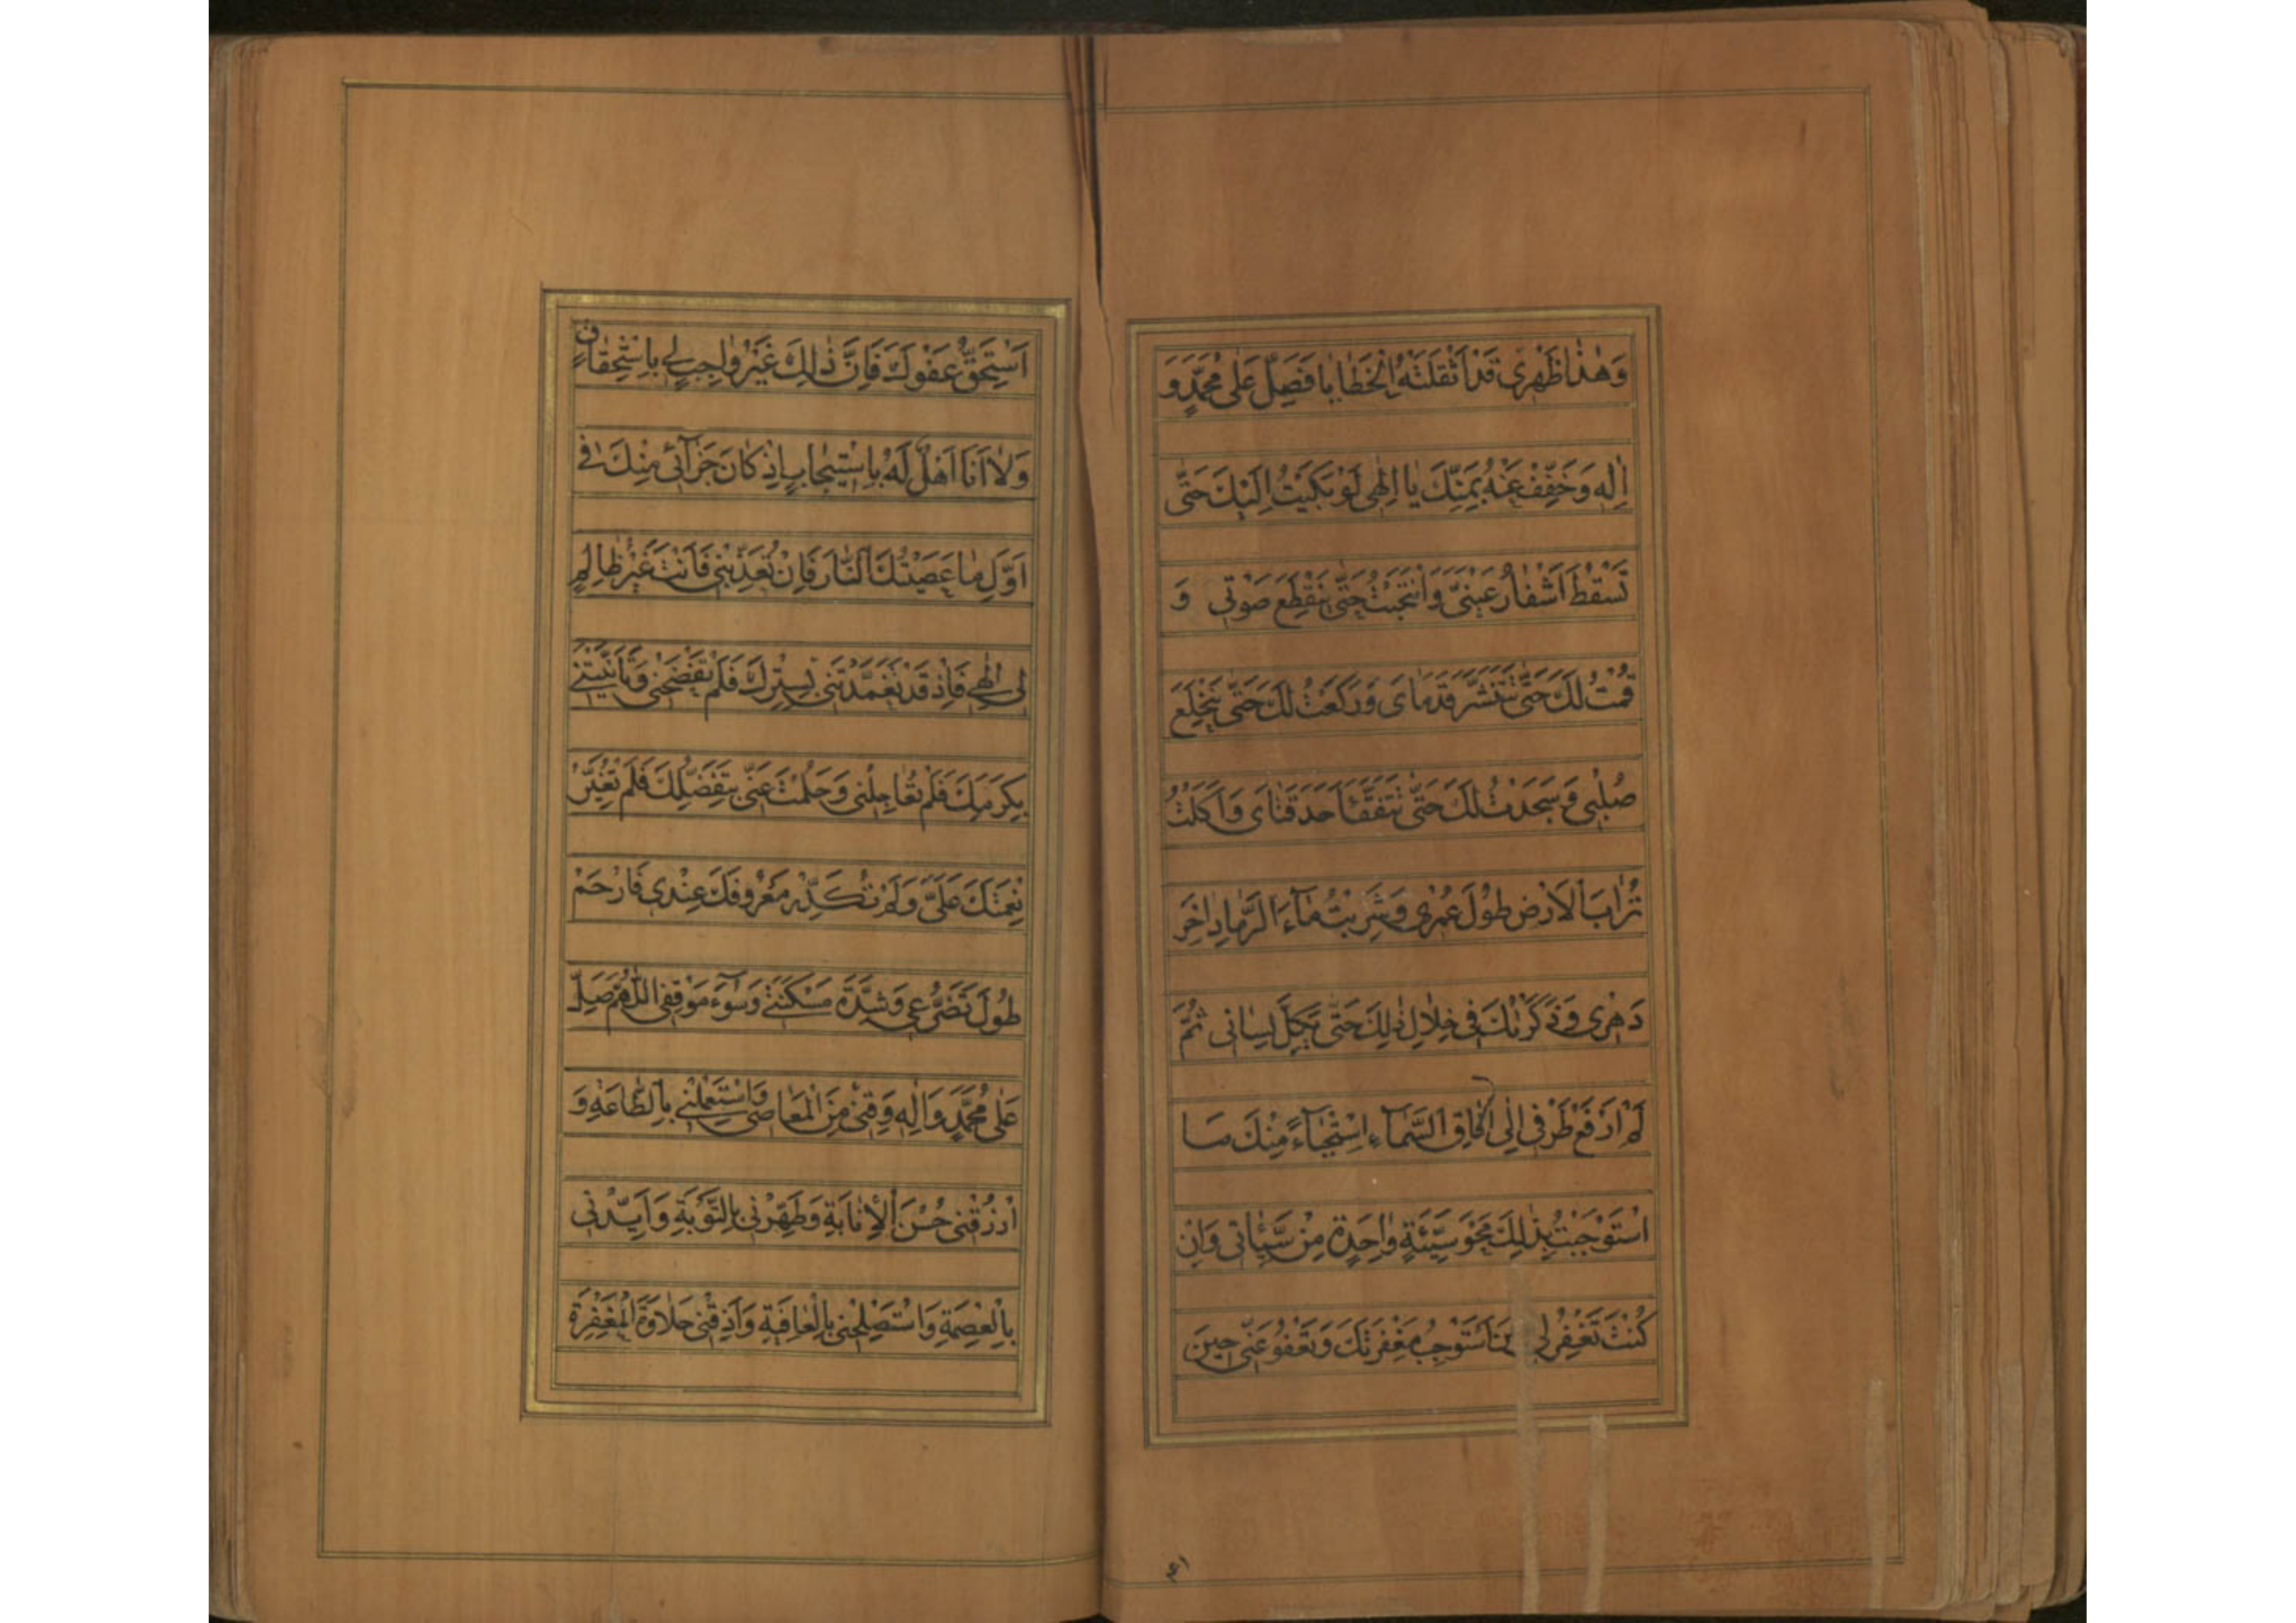 وَهٰذٰا ظَهْرِی قَدْ اَثْقَلَتْهُ الْخَطٰایٰا فَصَلِّ عَلٰی مُحَمَّدٍ وَ
اٰلِهِ وَ خَفِّفْ عَنْهُ بِمَنِّكَ یٰا اِلٰهِی لَوْ بَكَیْتُ اِلَیْكَ حَتّٰی
تَسْقُطَ اَشْفٰارُ عَیْنَیَّ وَ انْتَحَبْتُ حَتّٰی یَنْقَطِعَ صَوْتِی وَ
قُمْتُ لَكَ حَتّٰی تَتَنَشَّرَ قَدَمٰایَ وَ رَكَعْتُ لَكَ حَتّٰی یَنْخَلِعَ
صُلْبِی وَ سَجَدْتُ لَكَ حَتّٰی تَتَفَقَّأَ حَدَقَتٰایَ وَ اَكَلْتُ
تُرٰابَ الْاَرْضِ طُولَ عُمْرِی وَ شَرِبْتُ مٰآءَ الرَّمٰادِ اٰخِرَ
دَهْرِی وَ ذَكَرْتُكَ فِی خِلٰالِ ذٰلِكَ حَتّٰی یَكِلَّ لِسٰانِی ثُمَّ
لَمْ اَرْفَعْ طَرْفِی اِلٰی اٰفٰاقِ السَّمٰآءِ اسْتِحْیٰآءً مِنْكَ مَا
اسْتَوْجَبْتُ بِذٰلِكَ مَحْوَ سَیِّئَةٍ وٰاحِدَةٍ مِنْ سَیِّئٰاتِی وَ اِنْ
كُنْتَ تَغْفِرُ لِی حِینَ اَسْتَوْجِبُ مَغْفِرَتَكَ وَ تَعْفُو عَنِّی حِینَ
۴۱
اَسْتَحِقُّ عَفْوَكَ فَاِنَّ ذٰلِكَ غَیْرُ وٰاجِبٍ لِی بِاسْتِحْقٰاقٍ
وَ لٰا اَنَا اَهْلٌ لَهُ بِاسْتِیجٰابٍ اِذْ كٰانَ جَزٰآئِی مِنْكَ فِی
اَوَّلِ مٰا عَصَیْتُكَ النّٰارَ فَاِنْ تُعَذِّبْنِی فَاَنْتَ غَیْرُ ظٰالِمٍ
لِی اِلٰهِی فَاِذْ قَدْ تَغَمَّدْتَنِی بِسِتْرِكَ فَلَمْ تَفْضَحْنِی وَ تَاَنَّیْتَنِی
بِكَرَمِكَ فَلَمْ تُعٰاجِلْنِی وَ حَلُمْتَ عَنِّی بِتَفَضُّلِكَ فَلَمْ تُغَیِّرْ
نِعْمَتَكَ عَلَیَّ وَ لَمْ تُكَدِّرْ مَعْرُوفَكَ عِنْدِی فَارْحَمْ
طُولَ تَضَرُّعِی وَ شِدَّةَ مَسْكَنَتِی وَ سُوٓءَ مَوْقِفِی اللّٰهُمَّ صَلِّ
عَلٰی مُحَمَّدٍ وَ اٰلِهِ وَ قِنِی مِنَ الْمَعٰاصِی وَ اسْتَعْمِلْنِی بِالطّٰاعَةِ وَ
ارْزُقْنِی حُسْنَ الْاِنٰابَةِ وَ طَهِّرْنِی بِالتَّوْبَةِ وَ اَیِّدْنِی
بِالْعِصْمَةِ وَ اسْتَصْلِحْنِی بِالْعٰافِیَةِ وَ اَذِقْنِی حَلٰاوَةَ الْمَغْفِرَةِ